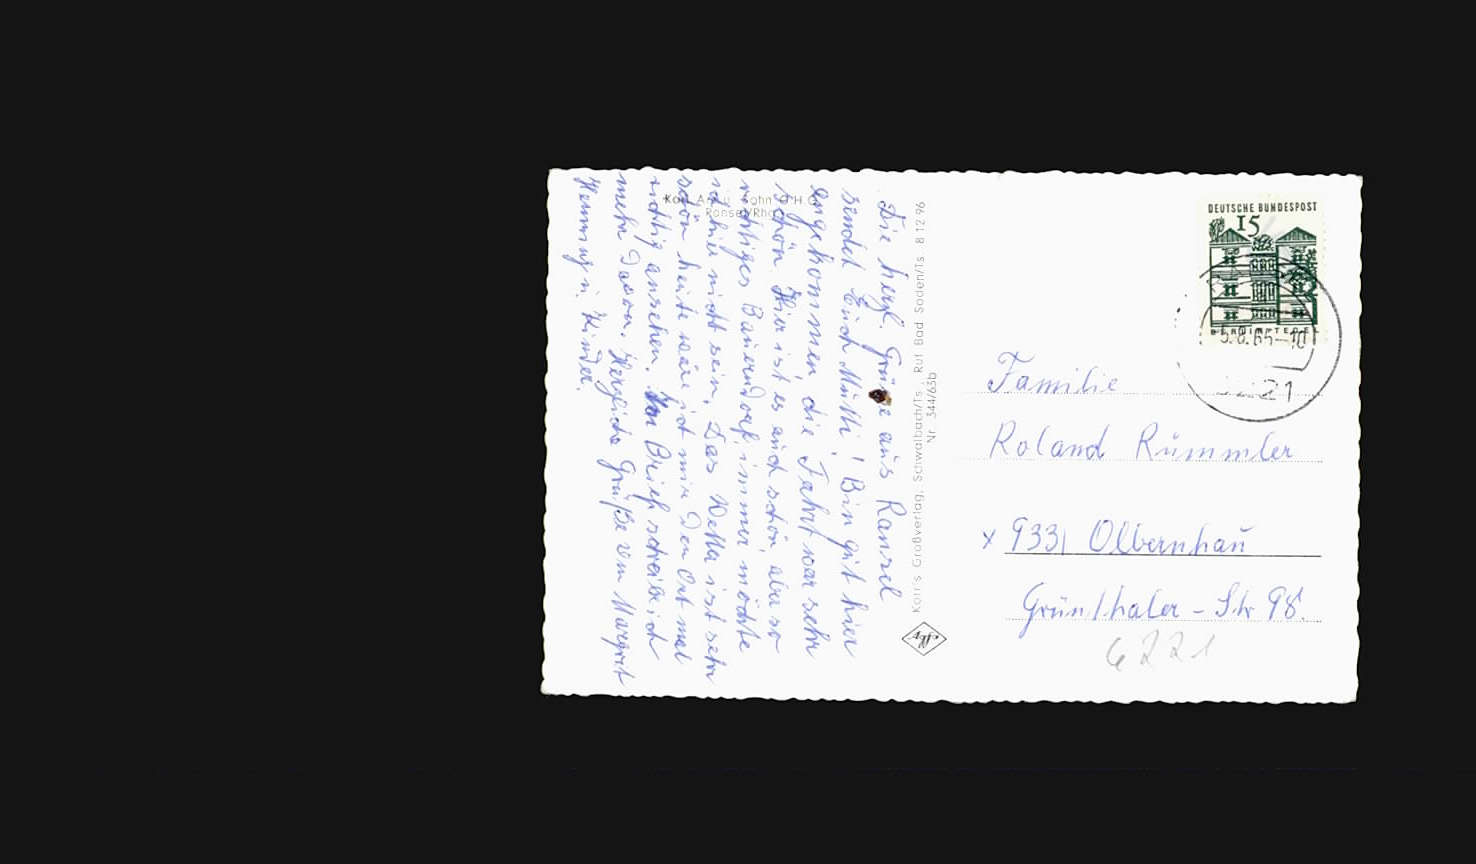 Karl A u. Sohn O.H.G.
Ransel/Rhg.
Die herzl. Grüße aus Ransel
sendet Euch Mutti! Bin gut hier
angekommen, die Fahrt war sehr
schön. Hier ist es auch schön, aber so
richtiges Bauerndorf, immer möchte
ich hier nicht sein. Das Wetter ist sehr
schön heute wäre ich mir den Ort mal
richtig ansehen. Im Brief schreibe ich
mehr davon. Herzliche Grüße von Margrit
Henning u. Kinder.
Korr's Großverlag, Schwalbach/Ts., Ruf Bad Soden/Ts. 8 12 96
Nr. 344/63b
Agfa
DEUTSCHE BUNDESPOST
15
BERLIN TEGEL
65-10
21
Familie
Roland Rümmler
x 933 Olbernhau
Grünthaler-Str 98.
6221